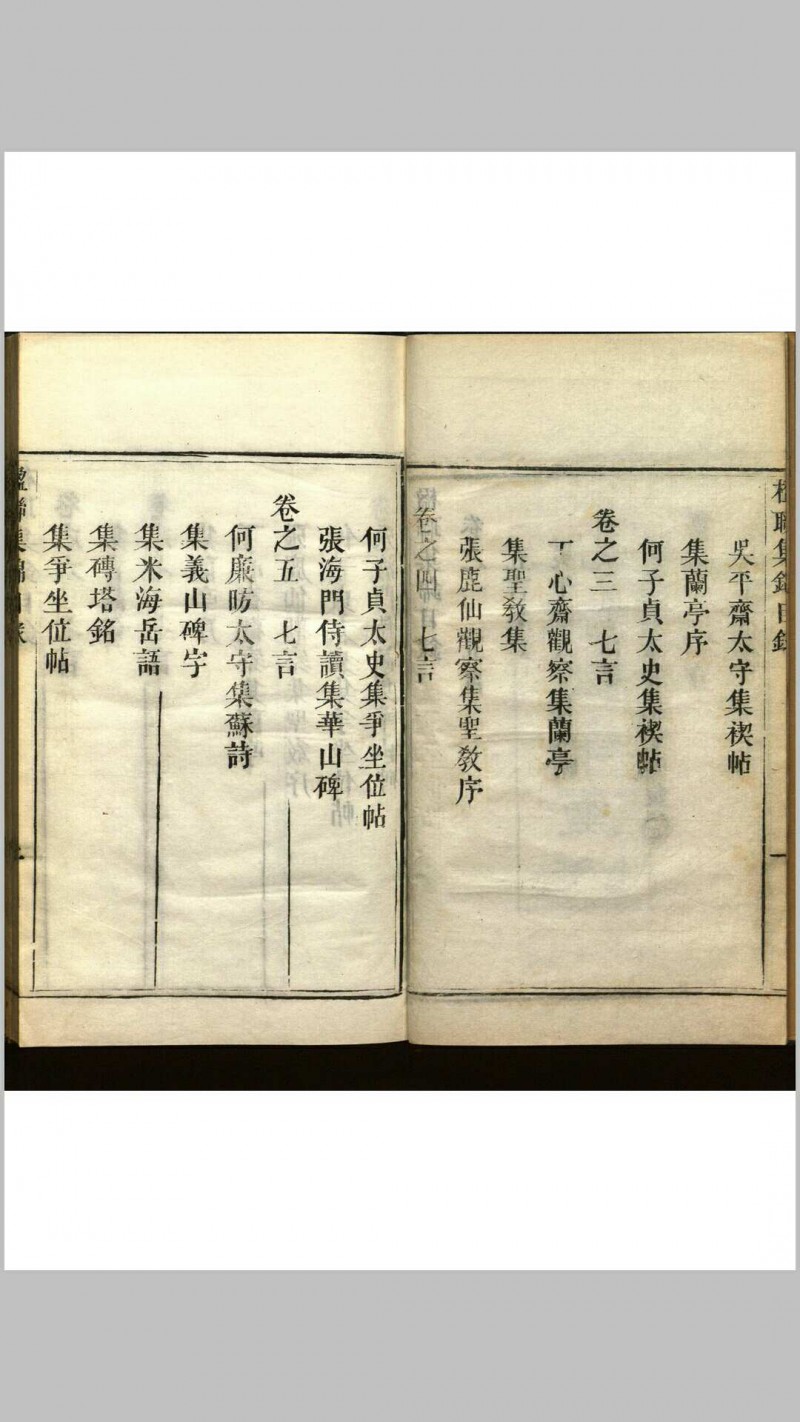 吳平齋太守集禊帖
集蘭亭序
何子貞太史集禊帖
卷之三　七言
丁心齋觀察集蘭亭
集聖敎集
張鹿仙觀察集聖敎序
卷之四　七言
何子貞太史集爭坐位帖
張海門侍讀集華山碑
卷之五　七言
何廉昉太守集蘇詩
集義山碑字
集米海岳語
集磚塔銘
集爭坐位帖